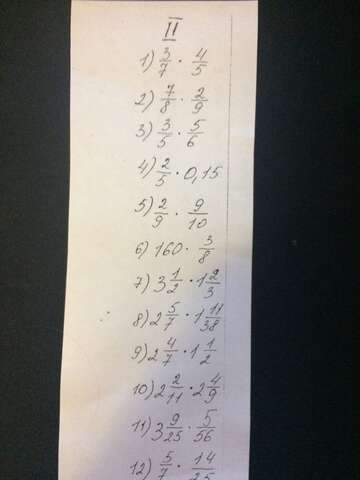 II
1) 3/7 · 4/5
2) 7/8 · 2/9
3) 3/5 · 5/6
4) 2/5 · 0,15
5) 2/9 · 9/10
6) 160 · 3/8
7) 3 1/2 · 1 2/3
8) 2 5/7 · 1 11/38
9) 2 4/7 · 1 1/2
10) 2 2/11 · 2 4/9
11) 3 9/25 · 5/56
12) 5/7 · 14/25